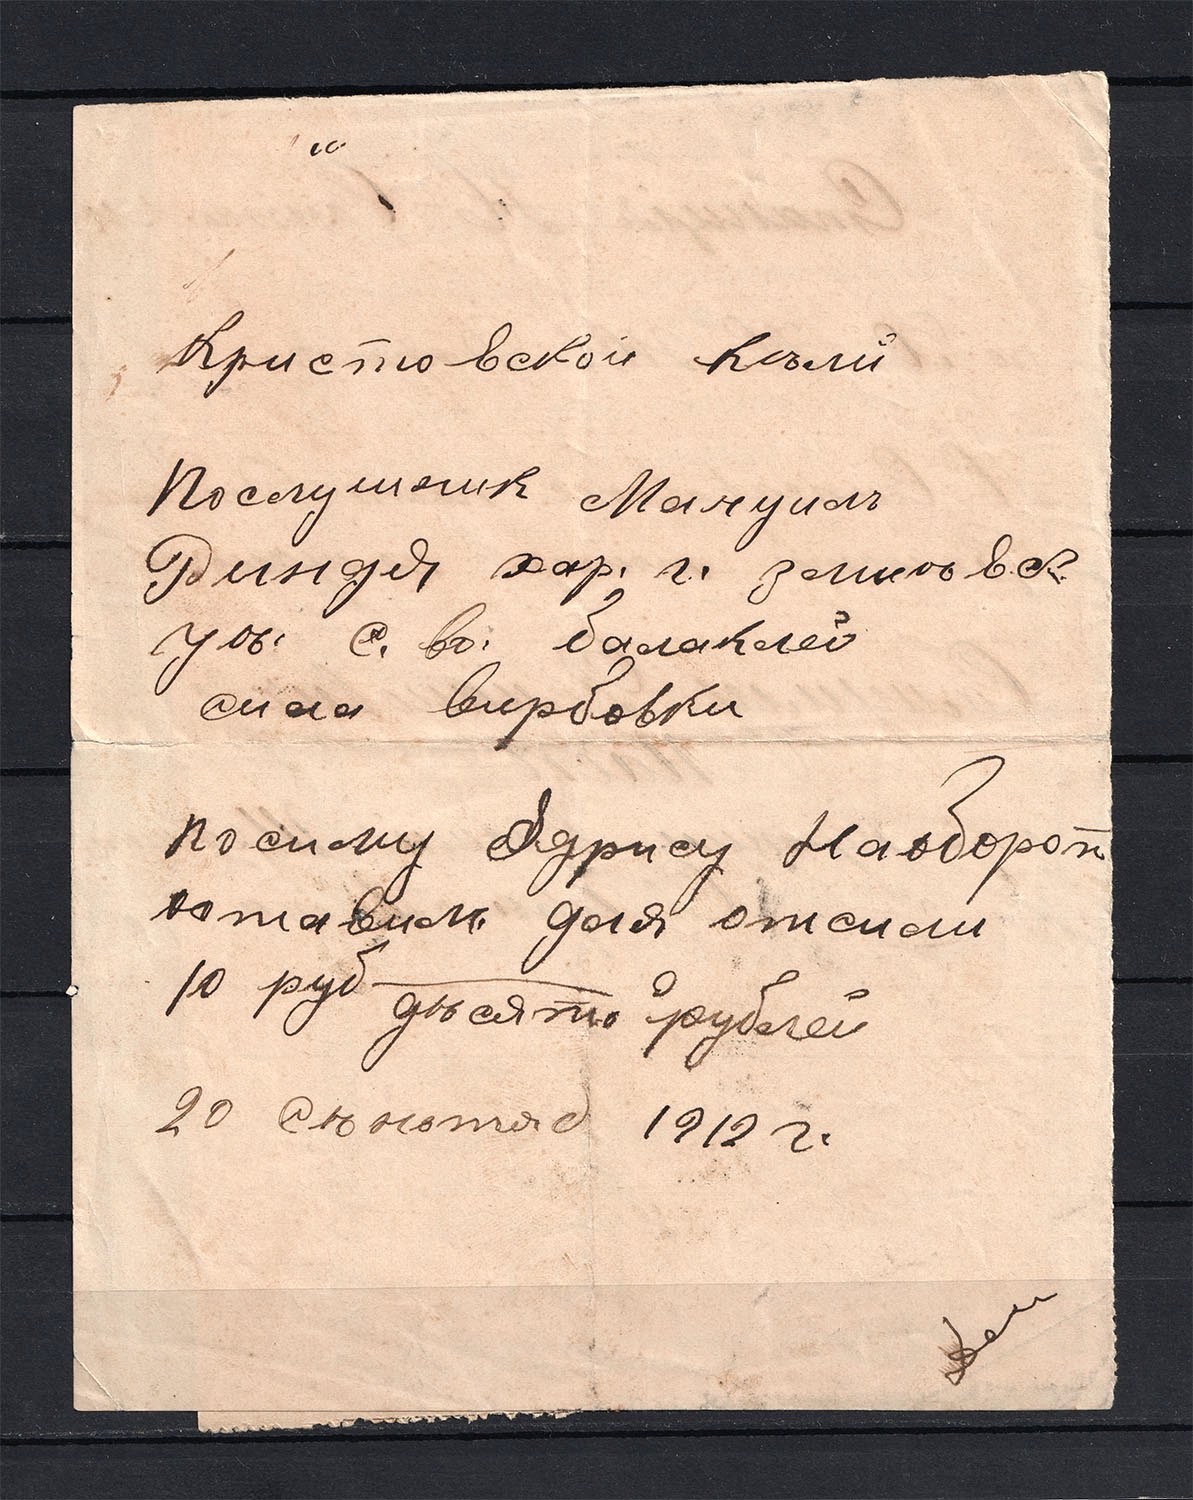 Кристовской Кѣли
Послушник Мануилъ
Риндя хар. г. змиевск
уѣ. с. во. балаклей
сила вирбовки
посиму Ядрису Наоборот
отавилъ для отсили
10 руб дѣсять рублей
20 сѣнтяб 1912 г.